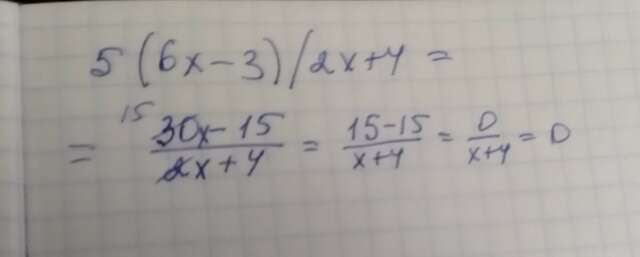 5(6x-3)/2x+4 =
= 15 30x-15/2x+4 = 15-15/x+4 = 0/x+4 = 0